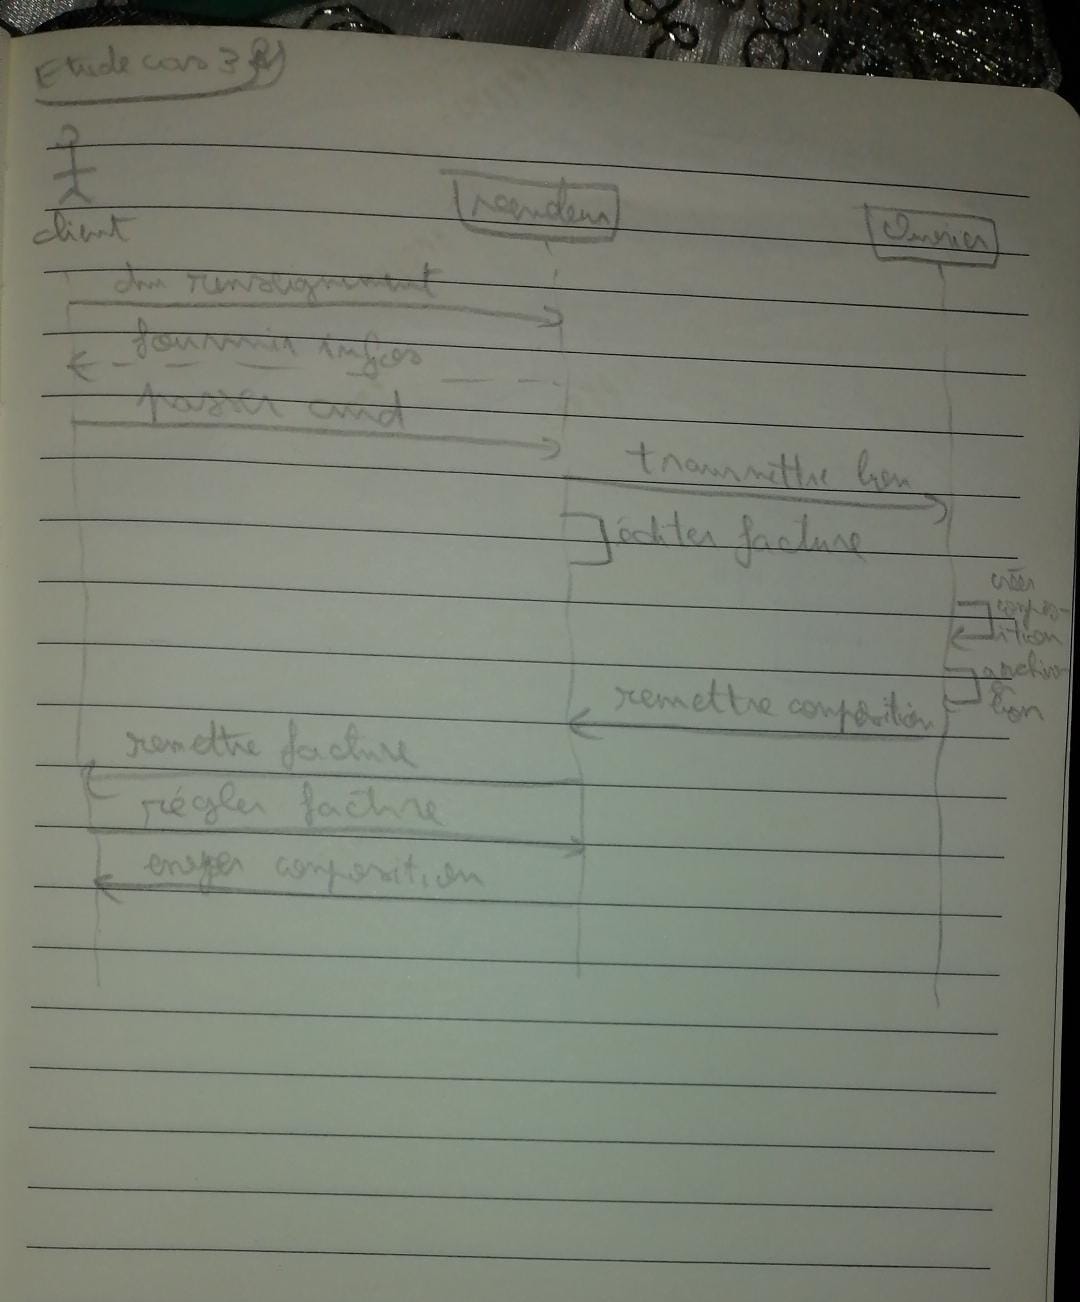 Etude cas 3
client
vendeur
Ouvrier
dm renseignement
fournir infos
passer cmd
transmettre bon
éditer facture
créer
compo-
sition
archiv
bon
remettre composition
remettre facture
régler facture
composition